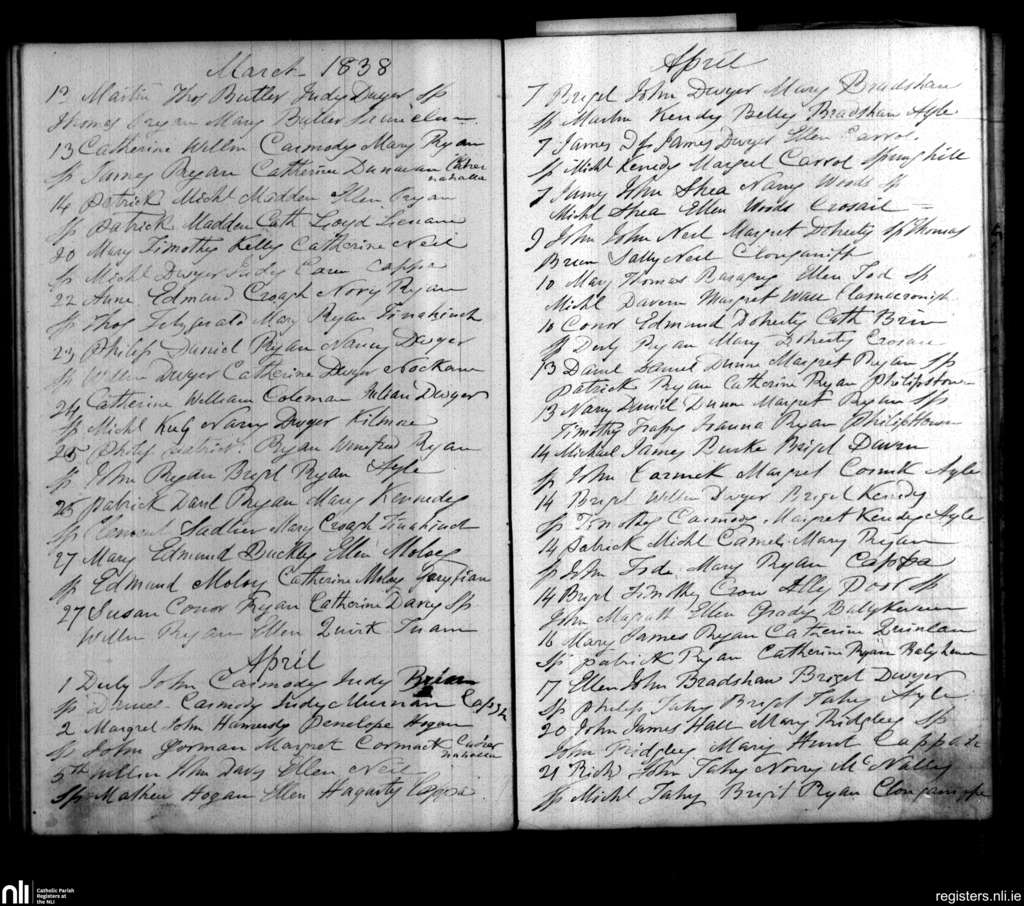 March 1838
12 Martin Thos Butler Judy Dwyer Sp
Thomas Ryan Mary Butler
13 Catherine Willm Carmody Mary Ryan
Sp James Ryan Catherine Dunavan
14 Patrick Michl Madden Ellen Ryan
Sp Patrick Madden Cath Lloyd
20 Mary Timothy Kelly Catherine Neil
Sp Michl Dwyer Judy Cappa
22 Anne Edmund Croagh Nory Ryan
Sp Thos Fitzgerald Mary Ryan Finahinch
23 Philip Daniel Ryan Nancy Dwyer
Sp Willm Dwyer Catherine Dwyer Nockane
24 Catherine William Coleman Julian Dwyer
Sp Michl Nancy Dwyer Kilmore
25 Philip Patrick Ryan Winefred Ryan
Sp John Ryan Brigit Ryan Ayle
26 Patrick Danl Ryan Mary Kennedy
Sp Sadlier Mary Croagh Finahinch
27 Mary Edmund Buckley Ellen Moloy
Sp Edmund Moloy Catherine Moloy
27 Susan Conor Ryan Catherine Darcy Sp
Willm Ryan Ellen Quirk Tuam
April
1 Darby John Carmody Judy Brian
Sp Daniel Carmody Judy Murnan
2 Margret John Penelope Hogan
Sp John Gorman Margret Cormack
5th Willm John Davy Ellen Neil
Sp Mathew Hogan Ellen Hagarty Cappa
April
7 Briget John Dwyer Mary Bradshaw
Sp Martin Kendy Betty Bradshaw Ayle
7 James James Dwyer Ellen Carrol
Sp Michl Kenedy Margret Carrol Springhill
7 James John Shea Nancy Woods Sp
Michl Shea Ellen Woods
9 John John Neil Margret Doherty Sp Thomas
Breen Sally Neil
10 Mary Thomas Ellen Sp
Michl Davern Margret Wall
10 Conor Edmund Doherty Cath Brin
Sp Darby Ryan Mary Doherty
13 Daniel Daniel Dunne Margret Ryan Sp
Patrick Ryan Catherine Ryan Philipstown
13 Nancy Daniel Dunn Margret Ryan Sp
Timothy Joanna Ryan Philipstown
14 Michael James Burke Briget Davern
Sp John Cormick Margret Cormik Ayle
14 Briget Willm Dwyer Briget Kendy
Sp Timothy Carmody Margret Kendy Ayle
14 Patrick Michl Mary Ryan
Sp John Mary Ryan Cappa
14 Briget Timothy Crow Ally Sp
John Magrath Ellen Grady
16 Mary James Ryan Catherine Quinlan
Sp Patrick Ryan Catherine Ryan
17 Ellen John Bradshaw Briget Dwyer
Sp Philip Fahy Briget Fahy Ayle
20 John James Hall Mary Ridgley Sp
John Ridgley Mary Hunt
21 Richd John Fahy Norry McNally
Sp Michl Fahy Brigit Ryan
nli
Catholic Parish
Registers at
the NLI
registers.nli.ie